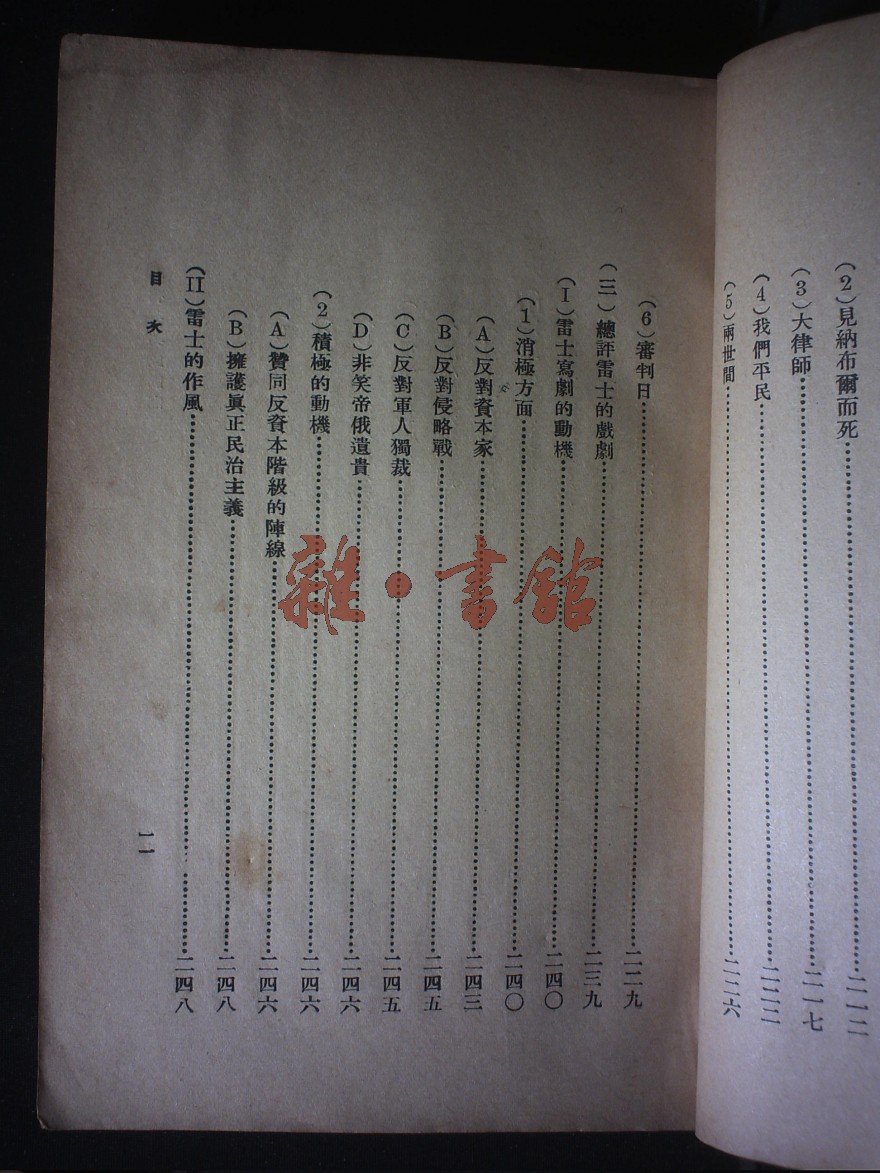 (2)見納布爾而死……二一二
(3)大律師……二一七
(4)我們平民……二二二
(5)兩世間……二二六
(6)審判日……二二九
(三)總評雷士的戲劇……二三九
(I)雷士寫劇的動機……二四〇
(1)消極方面……二四〇
(A)反對資本家……二四三
(B)反對侵略戰……二四五
(C)反對軍人獨裁……二四五
(D)非笑帝俄遺貴……二四六
(2)積極的動機……二四六
(A)贊同反資本階級的陣線……二四六
(B)擁護眞正民治主義……二四八
(II)雷士的作風……二四八
目次
一一
雜·書館